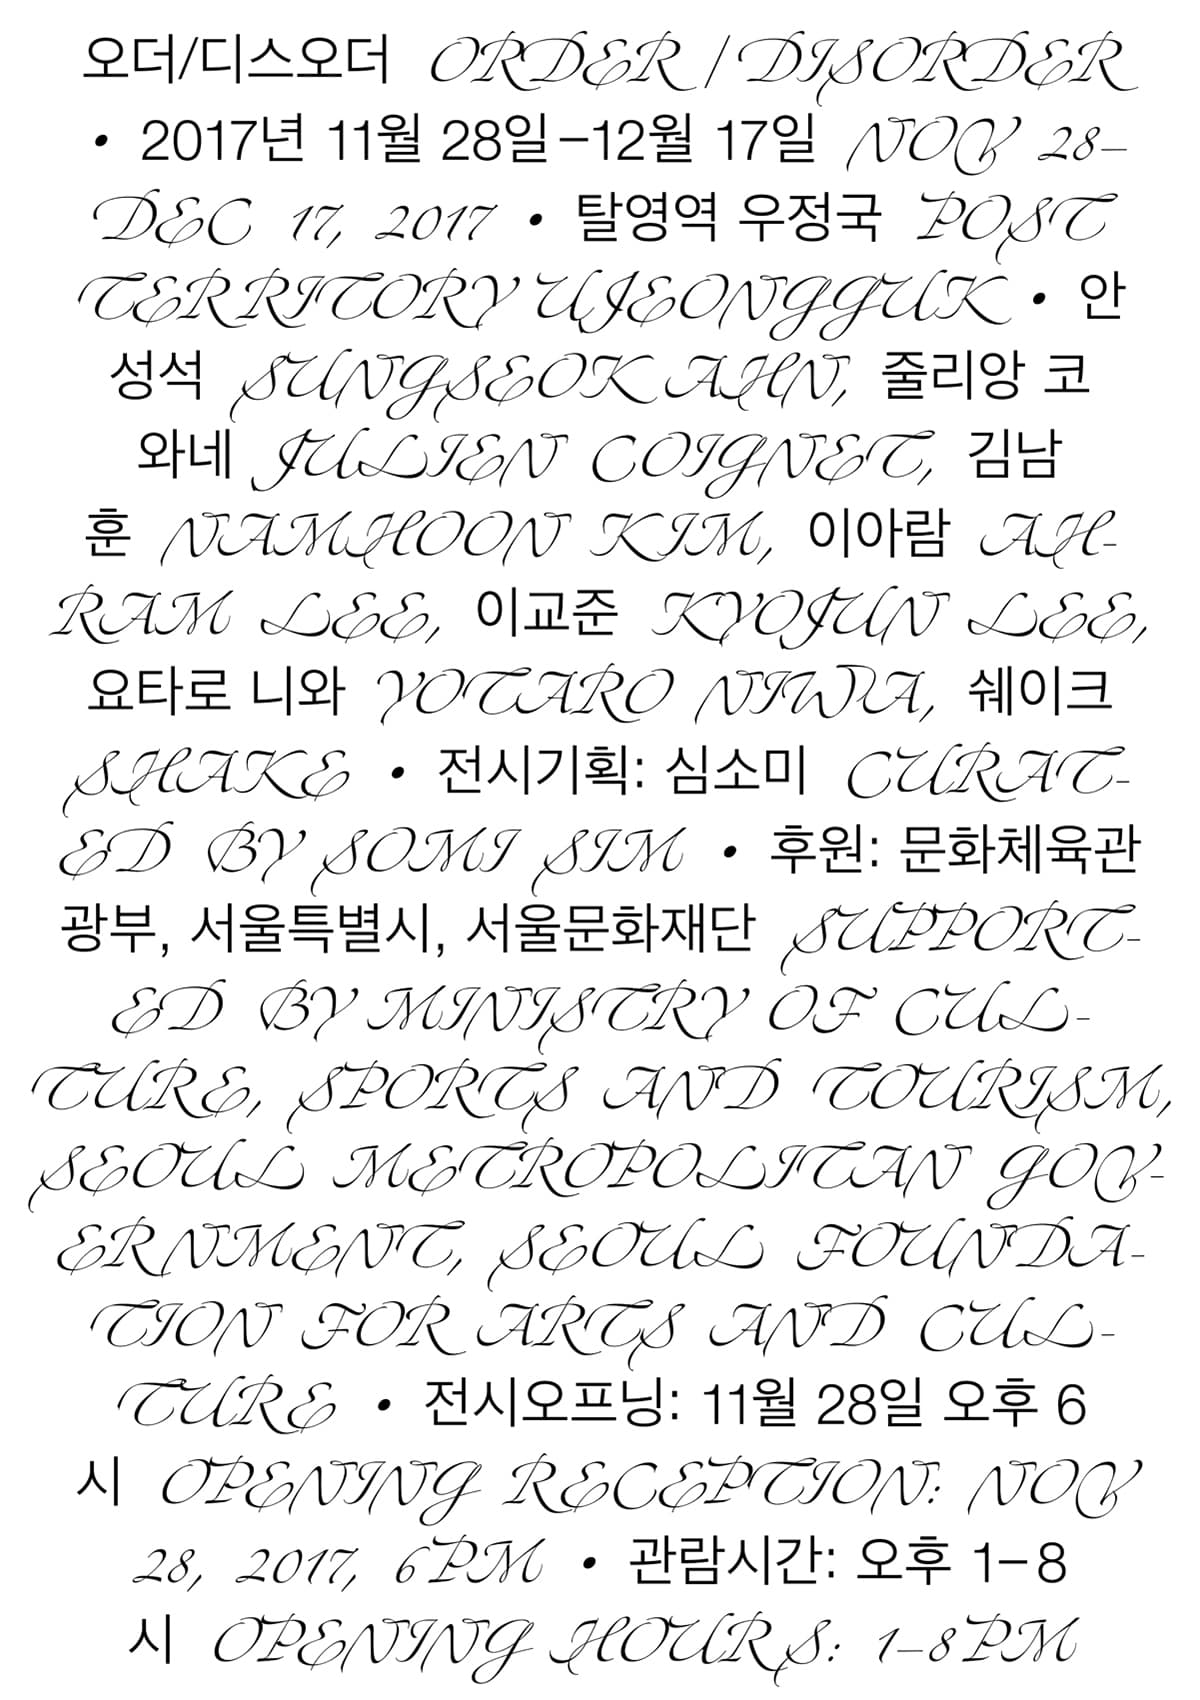 오더/디스오더 ORDER / DISORDER
• 2017년 11월 28일–12월 17일 NOV 28–
DEC 17, 2017 • 탈영역 우정국 POST
TERRITORY UJEONGGUK • 안
성석 SUNGSEOK AHN, 줄리앙 코
와네 JULIEN COIGNET, 김남
훈 NAMHOON KIM, 이아람 AH-
RAM LEE, 이교준 KYOJUN LEE,
요타로 니와 YOTARO NIWA, 쉐이크
SHAKE • 전시기획: 심소미 CURAT-
ED BY SOMI SIM • 후원: 문화체육관
광부, 서울특별시, 서울문화재단 SUPPORT-
ED BY MINISTRY OF CUL-
TURE, SPORTS AND TOURISM,
SEOUL METROPOLITAN GOV-
ERNMENT, SEOUL FOUNDA-
TION FOR ARTS AND CUL-
TURE • 전시오프닝: 11월 28일 오후 6
시 OPENING RECEPTION: NOV
28, 2017, 6PM • 관람시간: 오후 1–8
시 OPENING HOURS: 1–8PM